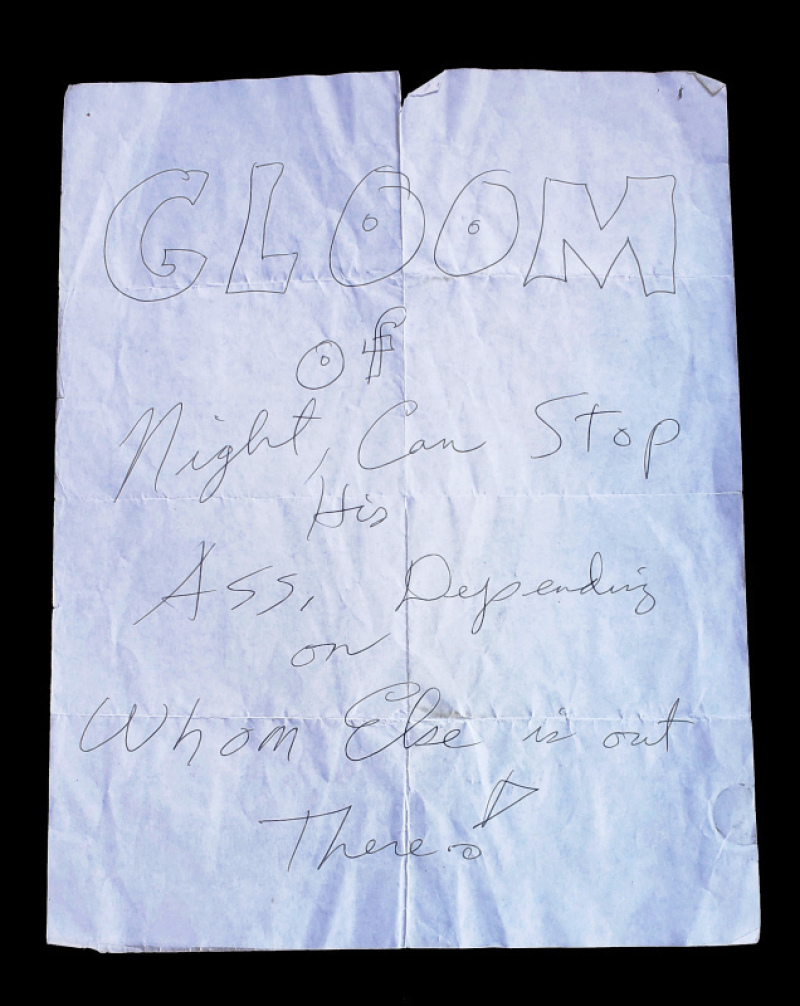 GLOOM
of
Night, Can Stop
His
Ass, Depending
on
Whom Else is out
There!